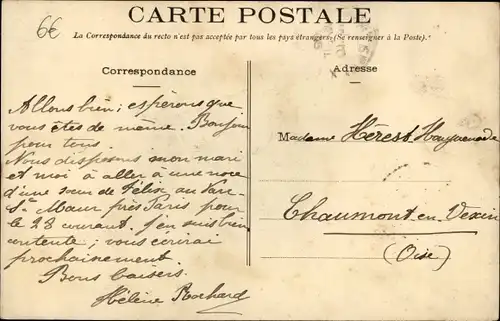 6€
CARTE POSTALE
La Correspondance du recto n'est pas acceptée par tous les pays étrangers. (Se renseigner à la Poste).
Correspondance
Adresse
Allons bien; espérons que
vous êtes de même. Bonjour
pour tous
Nous disposons mon mari
et moi à aller à une noce
d'une sœur de Félix, au Parc
St Maur près Paris pour
le 28 courant. J'en suis bien
contente; vous écrirai
prochainement.
Bons baisers.
Hélène Rochard
Madame Hérest
Chaumont en Vexin
(Oise)